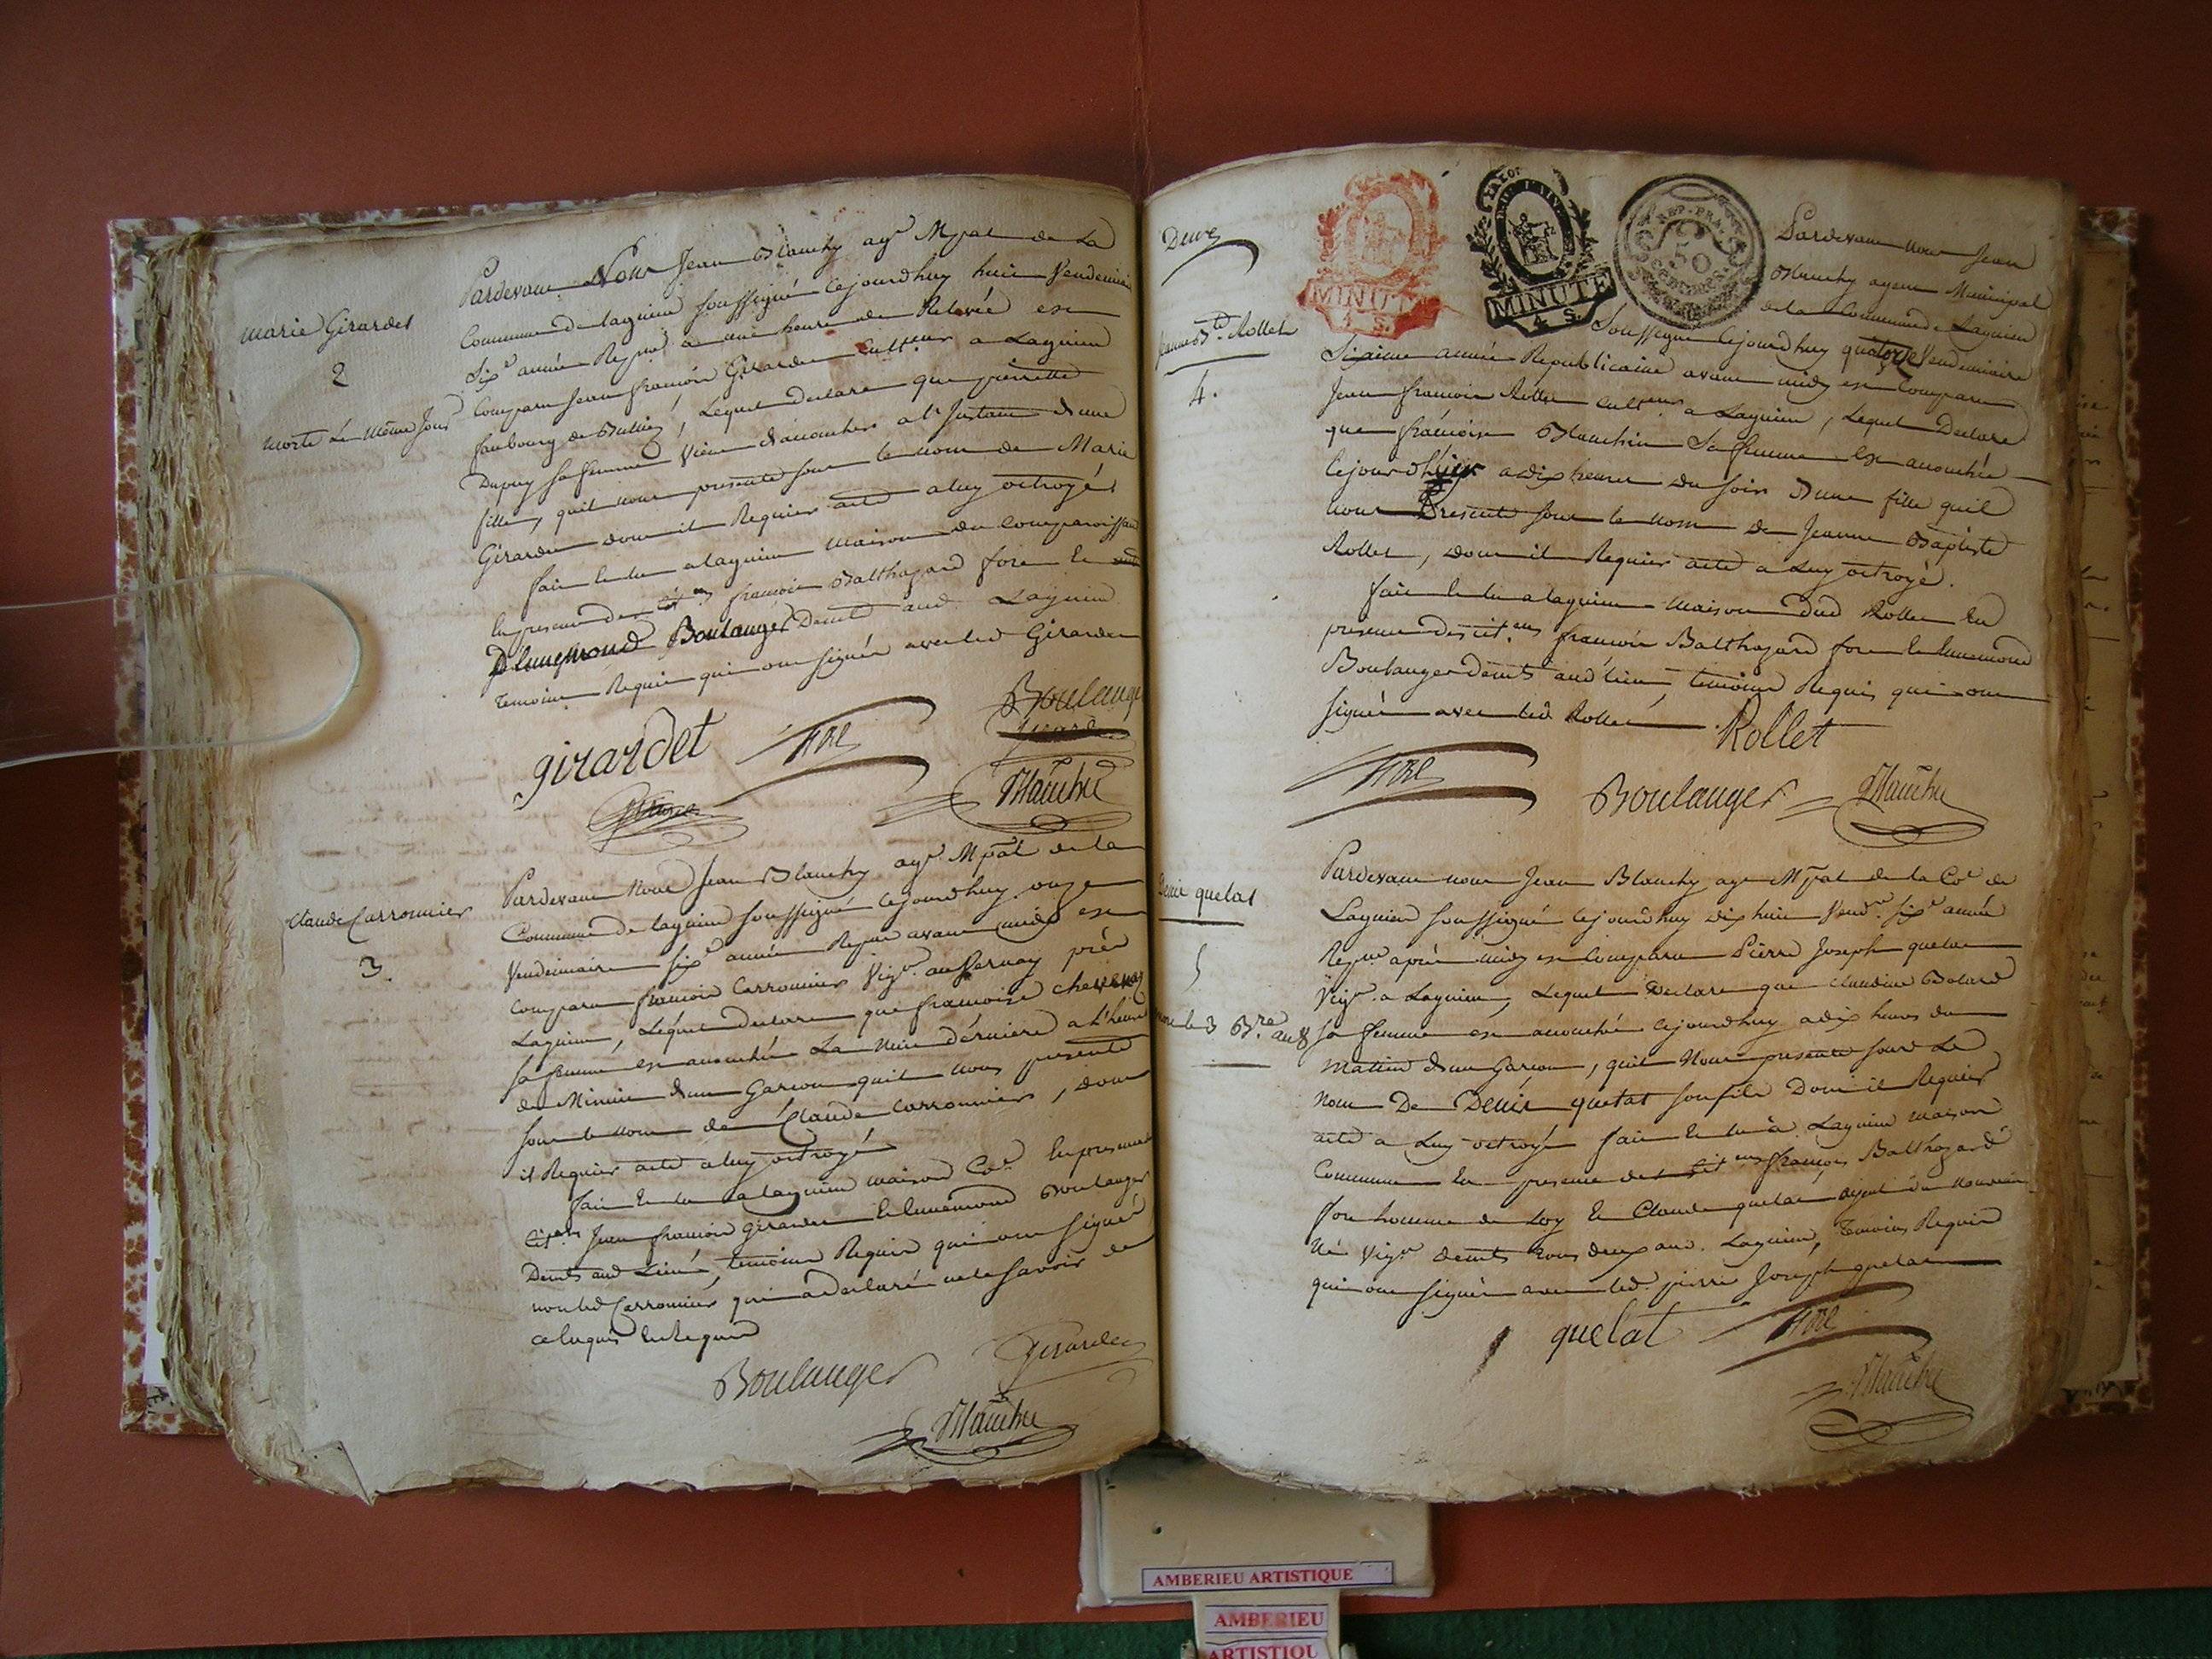 Marie Girardet
2
morte le même jour
Pardevant Nous Jean Blanchy agt Mpal de la
Commune de lagnieu soussigné cejourdhuy huit Vendemiaire
Sixe année Repne a une heure de Relevée est
Comparu Jean françois Girardet Cultteur a Lagnieu
faubourg de , Lequel declare que pierrette
Dupuy sa femme vient daccoucher a l'Instant d'une
fille, quil nous presente sous le nom de Marie
Girardet dont il Requiert acte a luy octroyé
fait et lu a lagnieu maison du comparoissant
En presence des citens françois Balthazard fore et
Boulanger demts aud Lagnieu
temoins Requis qui ont signés avec led Girardet
girardet fore Boulanger
Blanchy
Claude Carronnier
3.
Pardevant Nous Jean Blanchy agt Mpal de la
Commune de lagnieu soussigné cejourdhuy onze
Vendemiaire sixe année Repne avant midy est
comparu françois Carronnier Vign. au près
Lagnieu, Lequel declare que françoise
sa femme est accouchée La Nuit dernière a l'heure
de Minuit d'un Garcon quil nous presente
sous le nom de Claude Carronnier, dont
il Requiert acte a luy octroyé
fait et lu a lagnieu maison Cone En presence
Citens Jean françois Girardet et Boulanger
Demts aud Lieu, temoins Requis qui ont signé
non led Carronnier qui a declaré ne le savoir de
ce Enquis et Requis
Boulanger Girardet
Blanchy
Deuxe
Jeanne Bte Rollet
4.
MINUTE
4 S.
MINUTE
4 S.
REP. FRA.
50
CENTIMES
Pardevant nous Jean
Blanchy agent Municipal
de la Commune de Lagnieu
Soussigné Cejourdhuy quatorze Vendemiaire
Sixieme année Republicaine avant midy est Comparu
Jean françois Rollet cultteur a Lagnieu, Lequel Declare
que françoise Blanchin Sa femme est accouchée
a dix heures du soir d'une fille quil
nous Presente sous le nom de Jeanne Baptiste
Rollet, dont il Requiert acte a Luy octroyé.
fait et lu a lagnieu maison dud Rollet En
presence des citens françois Balthazard fore et
Boulanger demts aud lieu, temoins Requis qui ont
signés avec led Rollet
Rollet
fore Boulanger Blanchy
Denis quelat
5
mort le 3 Bre an 8
Pardevant nous Jean Blanchy agt Mpal de la Coe de
Lagnieu soussigné cejourdhuy dix huit Vendre sixe année
Repne après midy est Comparu Pierre Joseph quelat
Vign. a Lagnieu, Lequel Declare que claudine
sa femme est accouchée cejourdhuy a dix heures du
matin d'un Garcon, quil Nous presente sous Le
nom De Denis quelat son fils Dont il Requiert
acte a Luy octroyé fait et lu à Lagnieu maison
Commune En presence des citens françois Balthazard
fore homme de Loy et Claude quelat ayeul du nouveau
Né Vign. demts tous deux aud. Lagnieu, Temoins Requis
qui ont signés avec led. pierre Joseph quelat
quelat fore
Blanchy
AMBERIEU ARTISTIQUE
AMBERIEU
ARTISTIQU